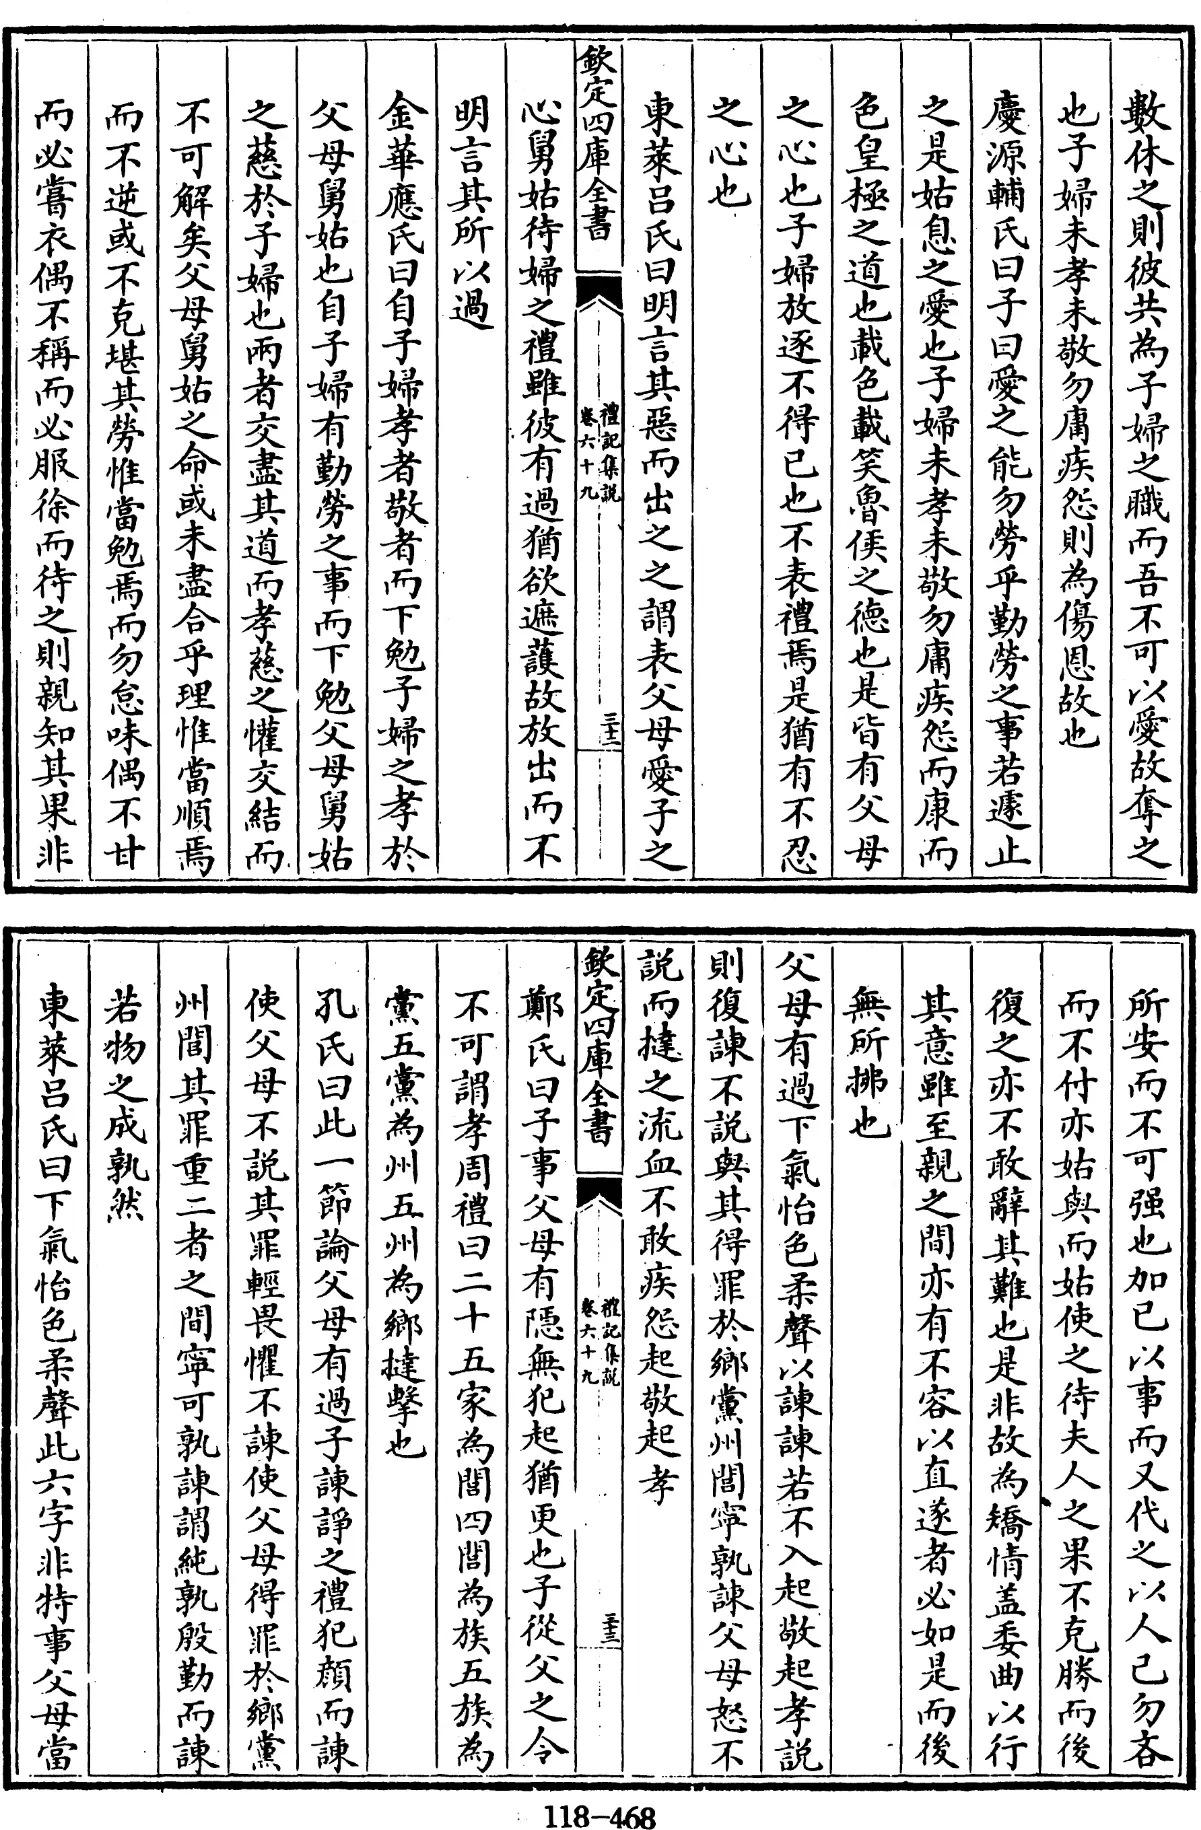 數休之則彼共為子婦之職而吾不可以愛故奪之
也子婦未孝未敬勿庸疾怨則為傷恩故也
慶源輔氏曰子曰愛之能勿勞乎勤勞之事若遽止
之是姑息之愛也子婦未孝未敬勿庸疾怨而康而
色皇極之道也載色載笑魯侯之德也是皆有父母
之心也子婦放逐不得已也不表禮焉是猶有不忍
之心也
東萊呂氏曰明言其惡而出之之謂表父母愛子之
欽定四庫全書
禮記集說
卷六十九
三十二
心舅姑待婦之禮雖彼有過猶欲遮護故放出而不
明言其所以過
金華應氏曰自子婦孝者敬者而下勉子婦之孝於
父母舅姑也自子婦有勤勞之事而下勉父母舅姑
之慈於子婦也兩者交盡其道而孝慈之懽交結而
不可解矣父母舅姑之命或未盡合乎理惟當順焉
而不逆或不克堪其勞惟當勉焉而勿怠味偶不甘
而必嘗衣偶不稱而必服徐而待之則親知其果非
所安而不可强也加己以事而又代之以人己勿吝
而不付亦姑與而姑使之待夫人之果不克勝而後
復之亦不敢辭其難也是非故為矯情盖委曲以行
其意雖至親之間亦有不容以直遂者必如是而後
無所拂也
父母有過下氣怡色柔聲以諫諫若不入起敬起孝說
則復諫不說與其得罪於鄉黨州閭寧孰諫父母怒不
說而撻之流血不敢疾怨起敬起孝
欽定四庫全書
禮記集說
卷六十九
三十三
鄭氏曰子事父母有隱無犯起猶更也子從父之令
不可謂孝周禮曰二十五家為閭四閭為族五族為
黨五黨為州五州為鄉撻擊也
孔氏曰此一節論父母有過子諫諍之禮犯顏而諫
使父母不說其罪輕畏懼不諫使父母得罪於鄉黨
州閭其罪重二者之間寧可孰諫謂純孰殷勤而諫
若物之成孰然
東萊呂氏曰下氣怡色柔聲此六字非特事父母當
118-468